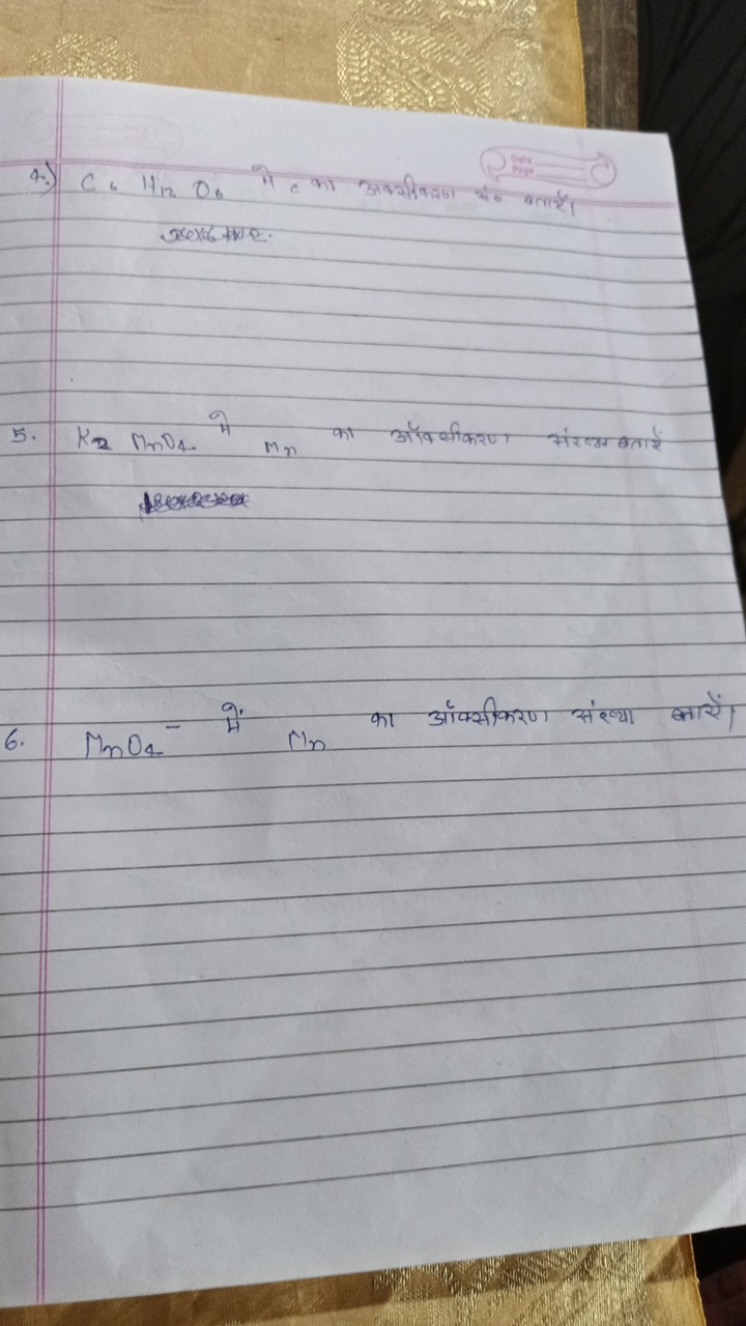 Date
Page
4.) C6 H12 O6 में c का अक्सीकरण सं० बतायें।
5. K2 MnO4 में Mn का ऑक्सीकरण संख्या बतायें
6. MnO4⁻ में Mn का ऑक्सीकरण संख्या बतायें।